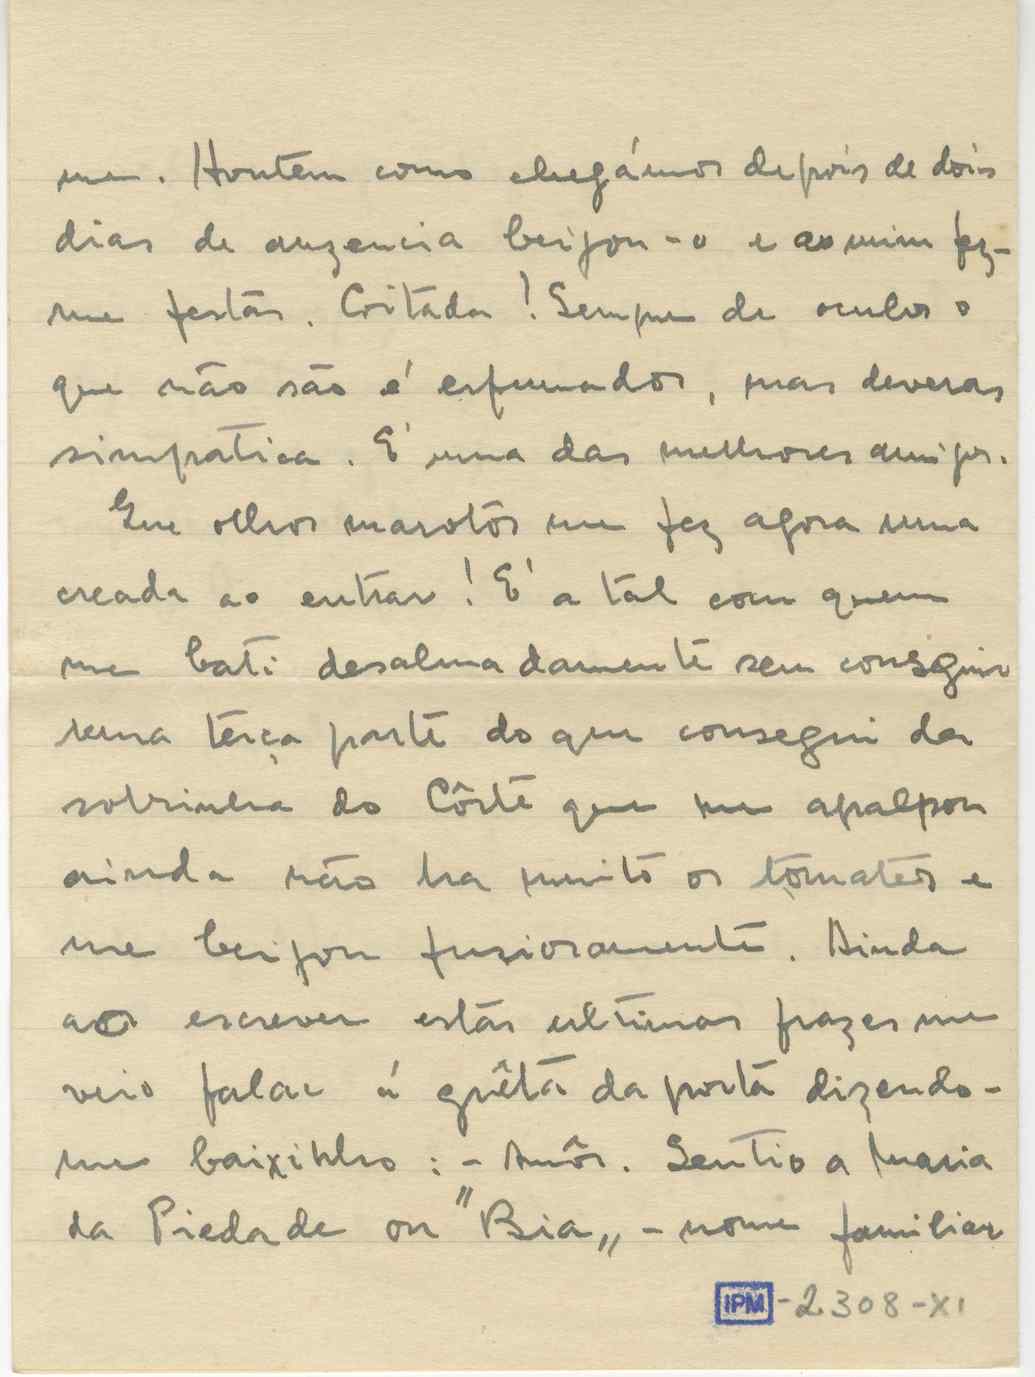 me. Hontem como chegámos depois de dois
dias de auzencia beijou-o e ao mim fez-
me festas. Coitada! Sempre de oculos o
que não são é esfumados, mas deveras
simpatica. E' uma das melhores amigas.
Que olhos marotos me fez agora uma
creada ao entrar! E' a tal com quem
me bati desalmadamente sem conseguir
uma terça parte do que consegui da
sobrinha do Côrte que me apalpou
ainda não ha muito os tomates e
me beijou furiosamente. Ainda
ao escrever estas ultimas frazes me
veio falar á grêta da porta dizendo-
me baixinho: - Amôr. Sentio a Maria
da Piedade ou "Bia" - nome familiar
IPM -2308-XI